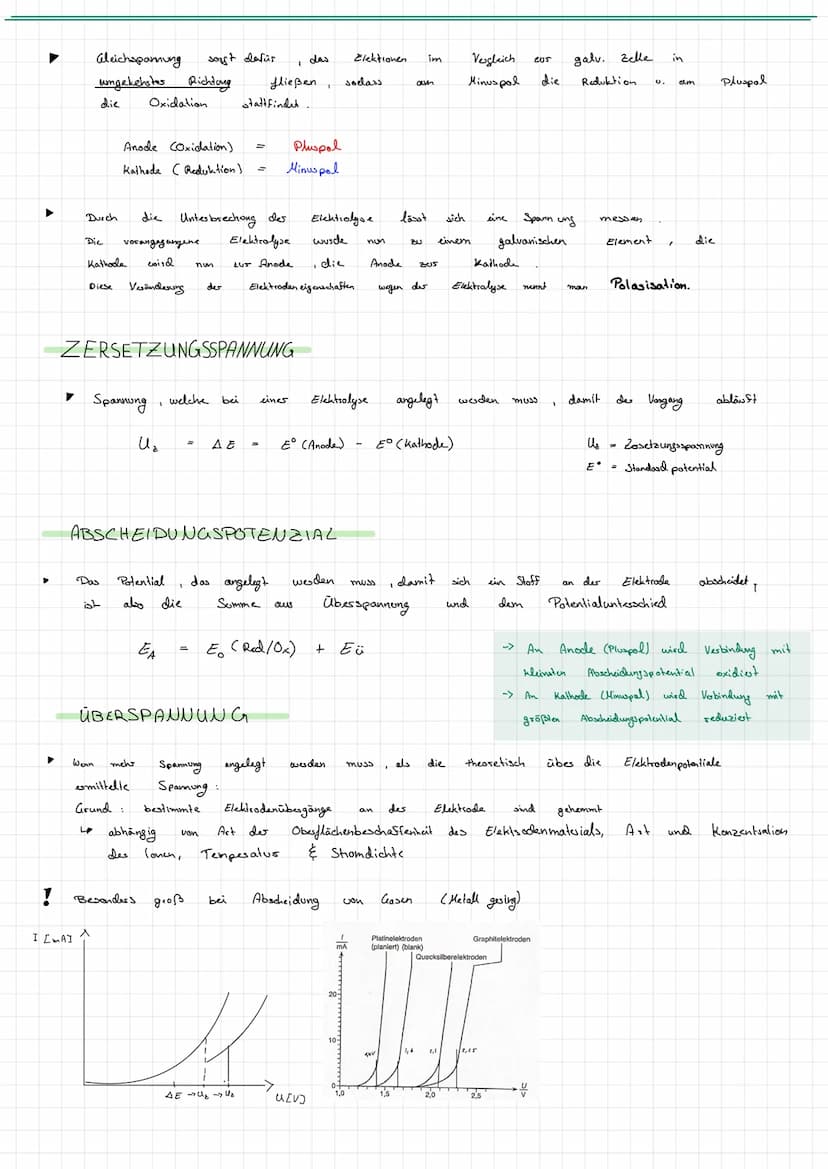 ▶ Gleichspannung sorgt dafür, das Elektronen im Vergleich zur galv. Zelle in
umgekehrter Richtung fließen, sodass am Minuspol die Reduktion u. am Pluspol
die Oxidation stattfindet.
Anode (Oxidation) = Pluspol
Kathode (Reduktion) = Minuspol
▶ Durch die Unterbrechung der Elektrolyse lässt sich eine Spannung messen.
Die vorangegangene Elektrolyse wurde nun zu einem galvanischen Element, die
Kathode wird nun zur Anode, die Anode zur Kathode.
Diese Veränderung der Elektrodeneigenschaften wegen der Elektrolyse nennt man Polarisation.
ZERSETZUNGSSPANNUNG
▶ Spannung, welche bei einer Elektrolyse angelegt werden muss, damit der Vorgang abläuft
Uz = ΔE = E° (Anode) - E° (Kathode)
Uz = Zersetzungsspannung
E° = Standard potential
ABSCHEIDUNGSPOTENZIAL
▶ Das Potential, das angelegt werden muss, damit sich ein Stoff an der Elektrode abscheidet,
ist also die Summe aus Überspannung und dem Potentialunterschied
EA = E0 (Red/Ox) + Eü
-> An Anode (Pluspol) wird Verbindung mit
kleinsten Abscheidungspotential oxidiert
-> An Kathode (Minuspol) wird Verbindung mit
größten Abscheidungspotential reduziert
ÜBERSPANNUNG
▶ Wenn mehr Spannung angelegt werden muss, als die theoretisch über die Elektrodenpotentiale
ermittelte Spannung:
Grund: bestimmte Elektrodenübergänge an der Elektrode sind gehemmt
↳ abhängig von Art der Oberflächenbeschaffenheit des Elektrodenmaterials, Art und Konzentration
der Ionen, Temperatur & Stromdichte
! Besonders groß bei Abscheidung von Gasen (Metall gering)
I [mA]
ΔE → Uz → Uz
U [V]
I
mA
Platinelektroden
(planiert) (blank)
Graphitelektroden
Quecksilberelektroden
20
10
1,6 2,1 2,25
0
1,0 1,5 2,0 2,5
U
V